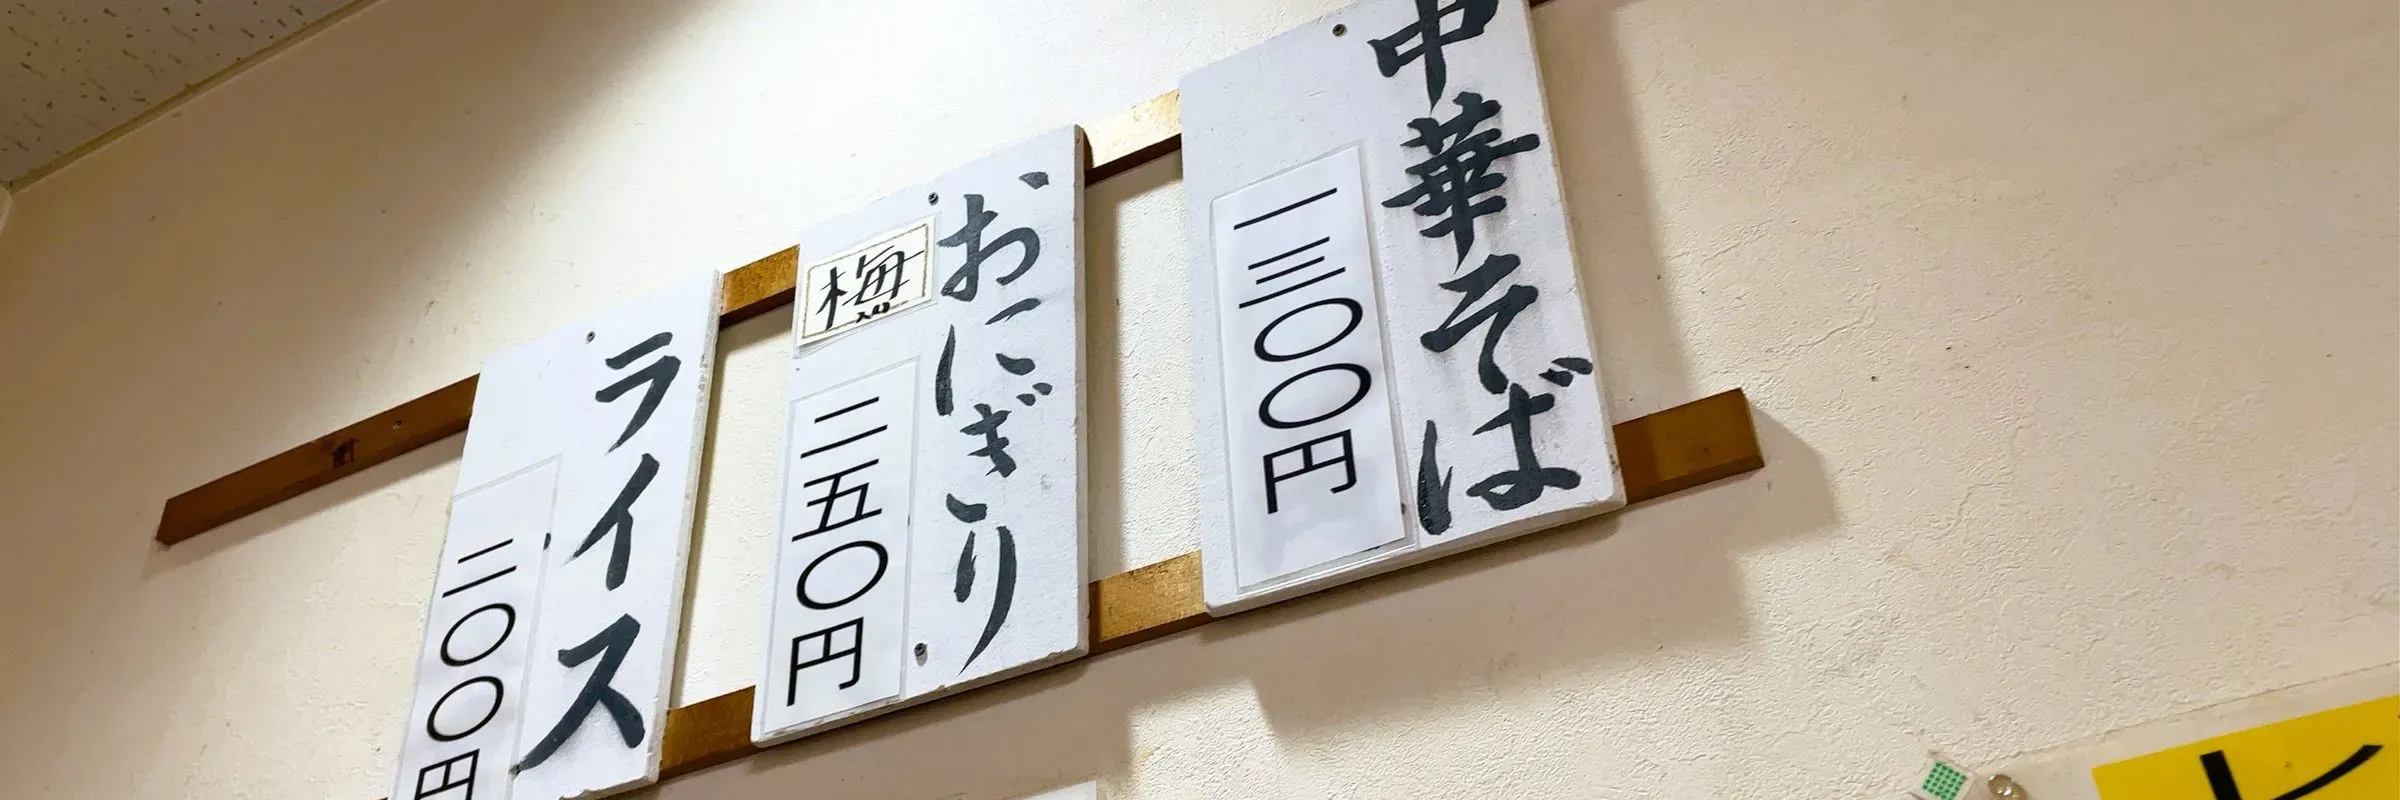 中華そば
一三〇〇円
おにぎり
梅
入り
二五〇円
ライス
二〇〇円